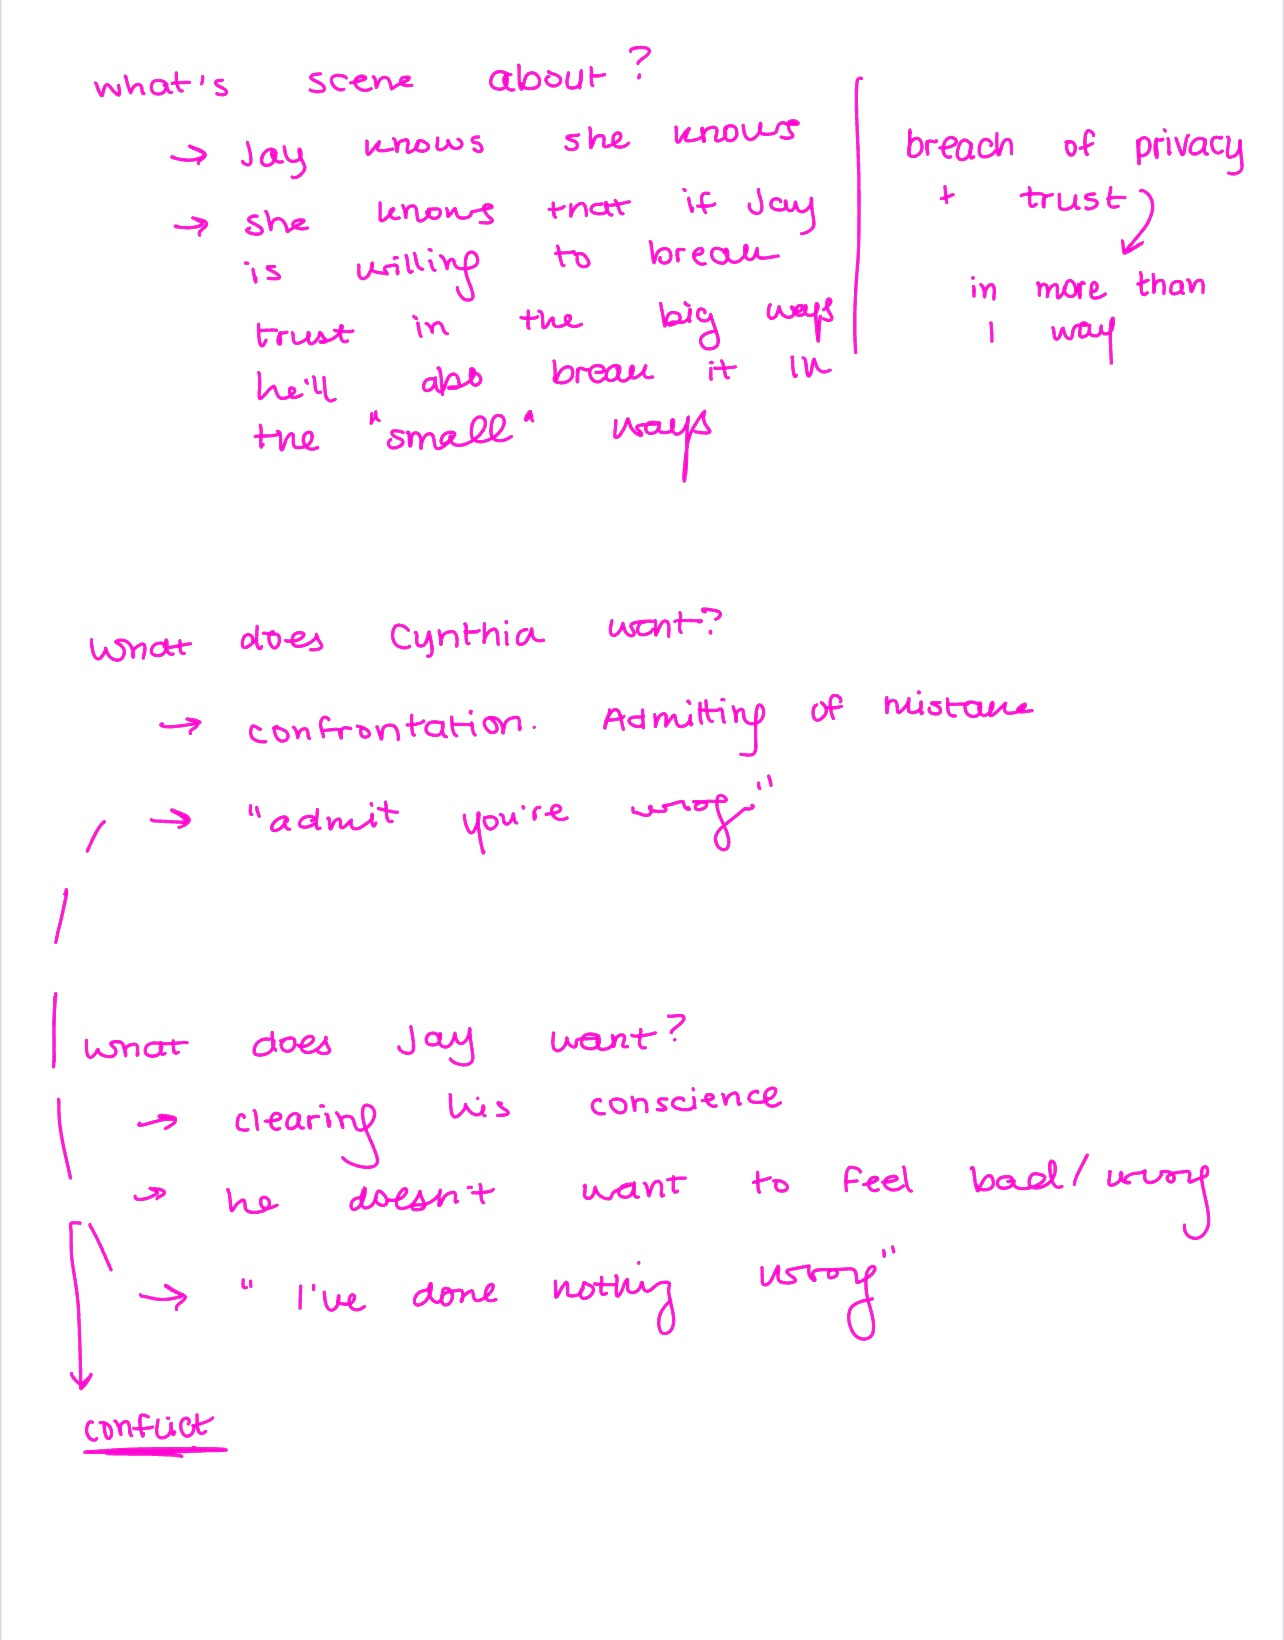 what's scene about?
→ Jay knows she knows
→ she knows that if Jay
is willing to break
trust in the big ways
he'll also break it in
the "small" ways
breach of privacy
+ trust
in more than
1 way
What does Cynthia want?
→ confrontation. Admitting of mistake
→ "admit you're wrong"
What does Jay want?
→ clearing his conscience
→ he doesn't want to feel bad/wrong
→ "I've done nothing wrong"
conflict